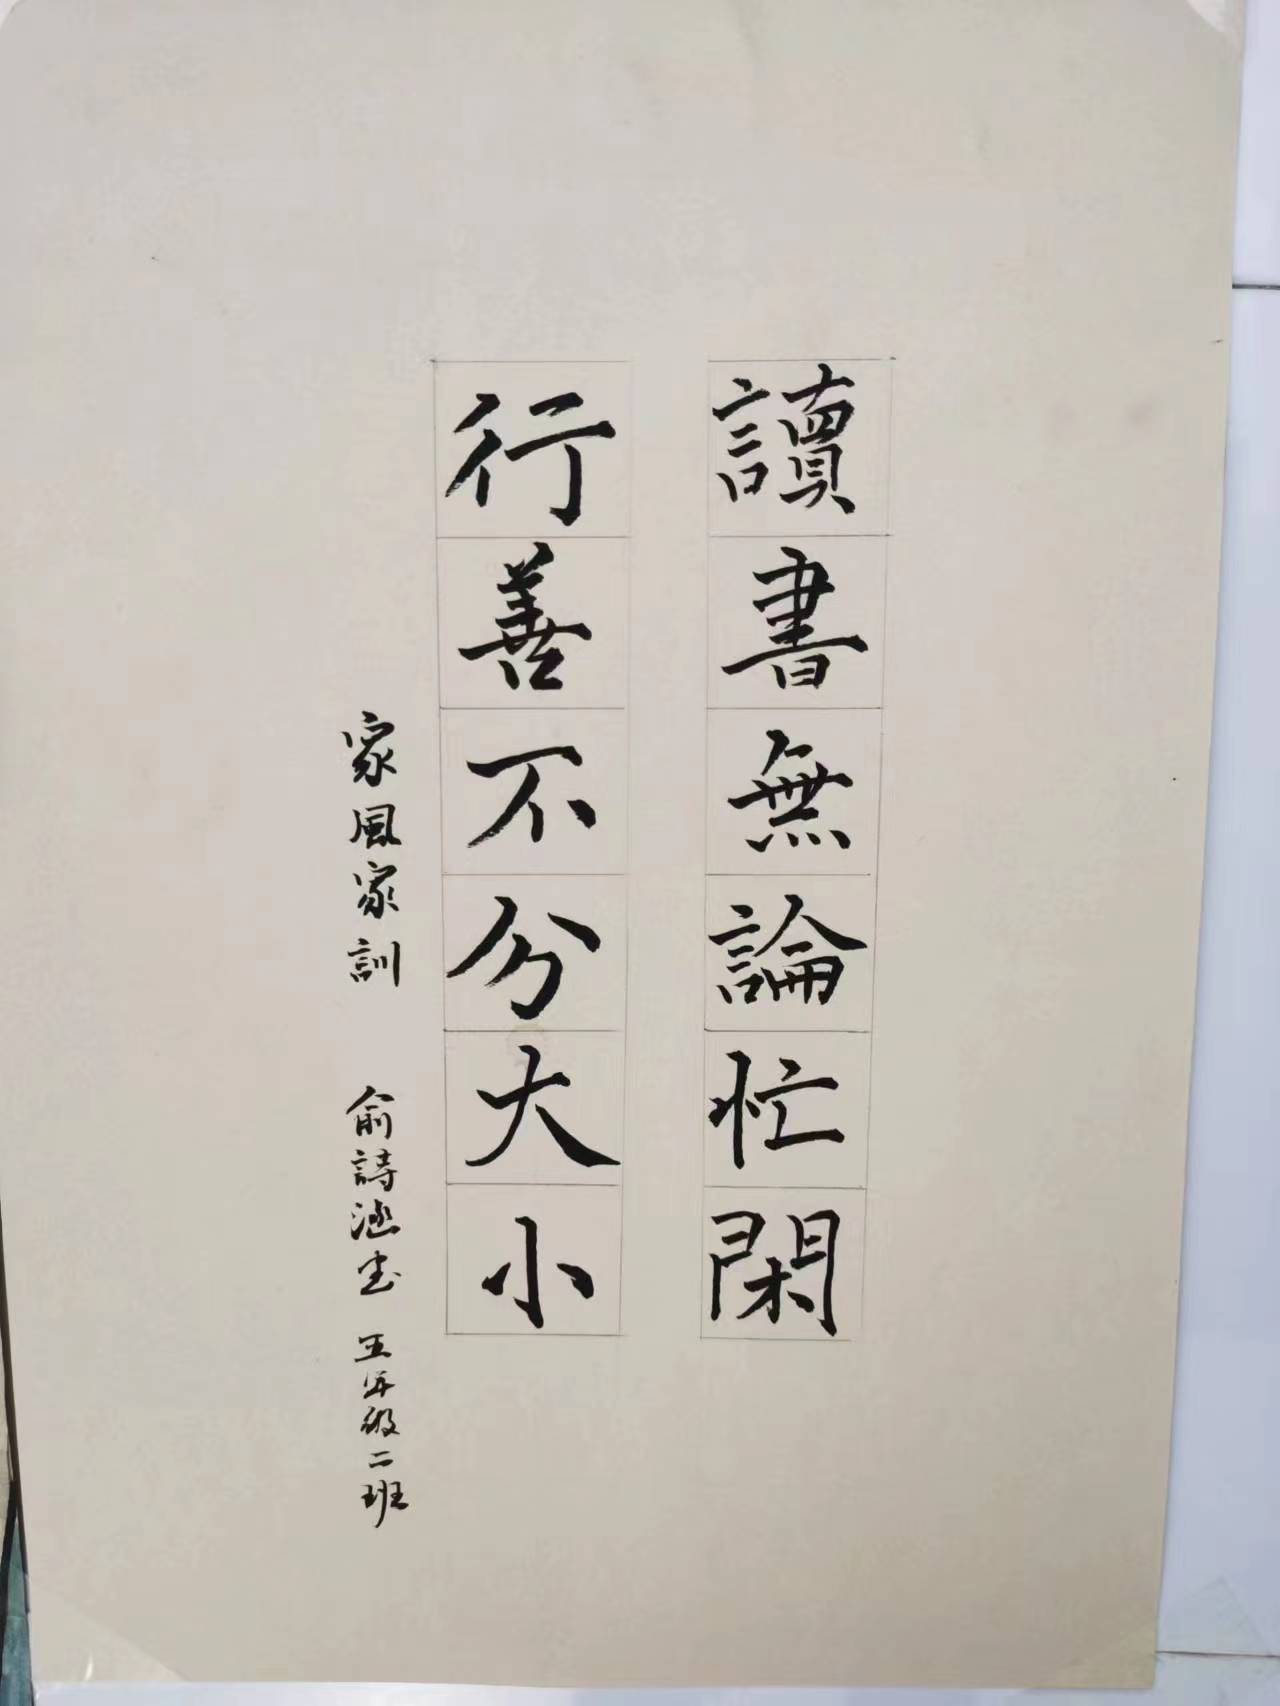 讀書無論忙閑
行善不分大小
家風家訓 俞詩涵书 五年級二班